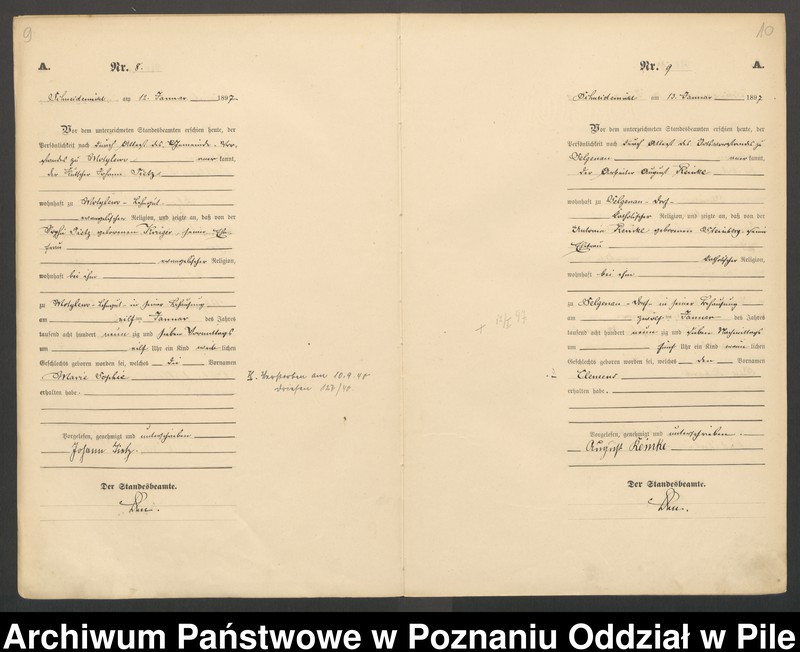 9
A.
Nr. 8.
Schneidemühl am 12. Januar 1897
Vor dem unterzeichneten Standesbeamten erschien heute, der
Persönlichkeit nach durch Attest des Gemeinde-Vor-
standes zu Motylewo kannt,
der Kutscher Johann Tietz
wohnhaft zu Motylewo-
evangelischer Religion, und zeigte an, daß von der
Sophie Tietz geborenen Krüger, seine Ehe-
frau
evangelischer Religion,
wohnhaft bei ihm
zu Motylewo- in seiner Behausung
am elften Januar des Jahres
tausend acht hundert neunzig und sieben Vormittags
um elf Uhr ein Kind weiblichen
Geschlechts geboren worden sei, welches die Vornamen
Marie Sophie
erhalten habe.
Vorgelesen, genehmigt und unterschrieben
Johann Tietz.
Der Standesbeamte.
Verstorben am 10.9.40
Driesen 127/40
10
Nr. 9
A.
Schneidemühl am 13. Januar 1897
Vor dem unterzeichneten Standesbeamten erschien heute, der
Persönlichkeit nach durch Attest des Ortsvorstandes zu
Selgenau kannt,
der Arbeiter August Remke
wohnhaft zu Selgenau-Dorf-
katholischer Religion, und zeigte an, daß von der
Antonie Remke geborenen seine
Ehefrau
katholischer Religion,
wohnhaft bei ihm
zu Selgenau-Dorf- in seiner Behausung
am zwölften Januar des Jahres
tausend acht hundert neunzig und sieben Nachmittags
um fünf Uhr ein Kind männlichen
Geschlechts geboren worden sei, welches den Vornamen
Clemens
erhalten habe.
Vorgelesen, genehmigt und unterschrieben.
August Remke
Der Standesbeamte.
Archiwum Państwowe w Poznaniu Oddział w Pile